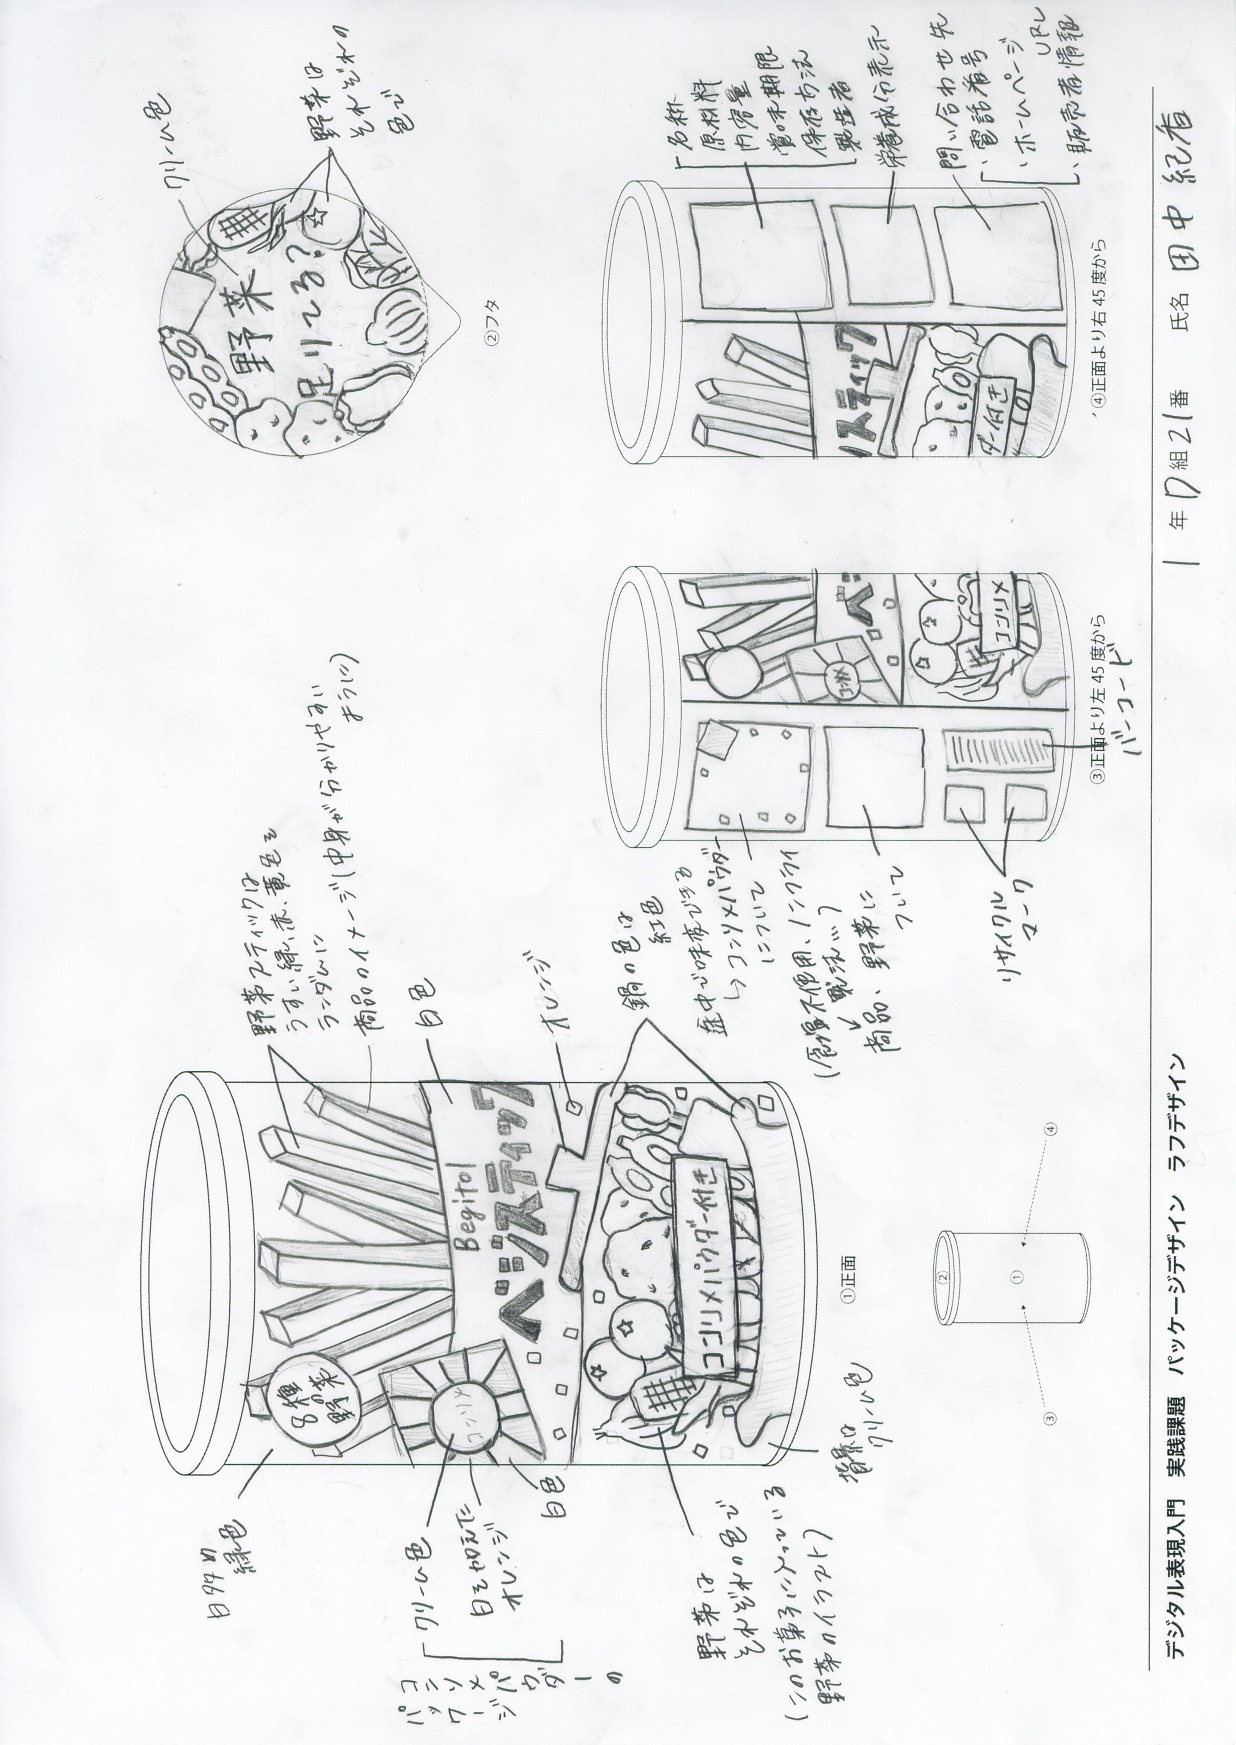 白多め
緑色
8種
の
野菜
野菜スティックは
うすい緑、赤、黄色を
ランダムに
商品のイメージ(中身が分かりやすい
ように)
コンソメパウダーの
パッケージ
クリーム色
白を加えた
オレンジ
白色
コンソメ
白色
Begitol
ベジスティック
オレンジ
鍋の色は
紅色
コンソメパウダー付き
野菜は
それぞれの色で
(このお菓子に入っている
野菜のイラスト)
背景は
クリーム色
①正面
クリーム色
野菜
足りてる?
野菜は
それぞれの
色で
②フタ
途中で味変できる
↳コンソメパウダー
について
(食塩不使用、ノンフライ
製法…)
商品、野菜に
ついて
リサイクル
マーク
コンソメ
ベジ
コンソメ
③正面より左 45 度から
バーコード
スティック
ダー付き
④正面より右 45 度から
名称
原材料
内容量
賞味期限
保存方法
製造者
栄養成分表示
問い合わせ先
・電話番号
・ホームページ
URL
・販売者情報
②
①
③
④
デジタル表現入門 実践課題 パッケージデザイン ラフデザイン
1 年 D 組 21 番 氏名 田中 紀香